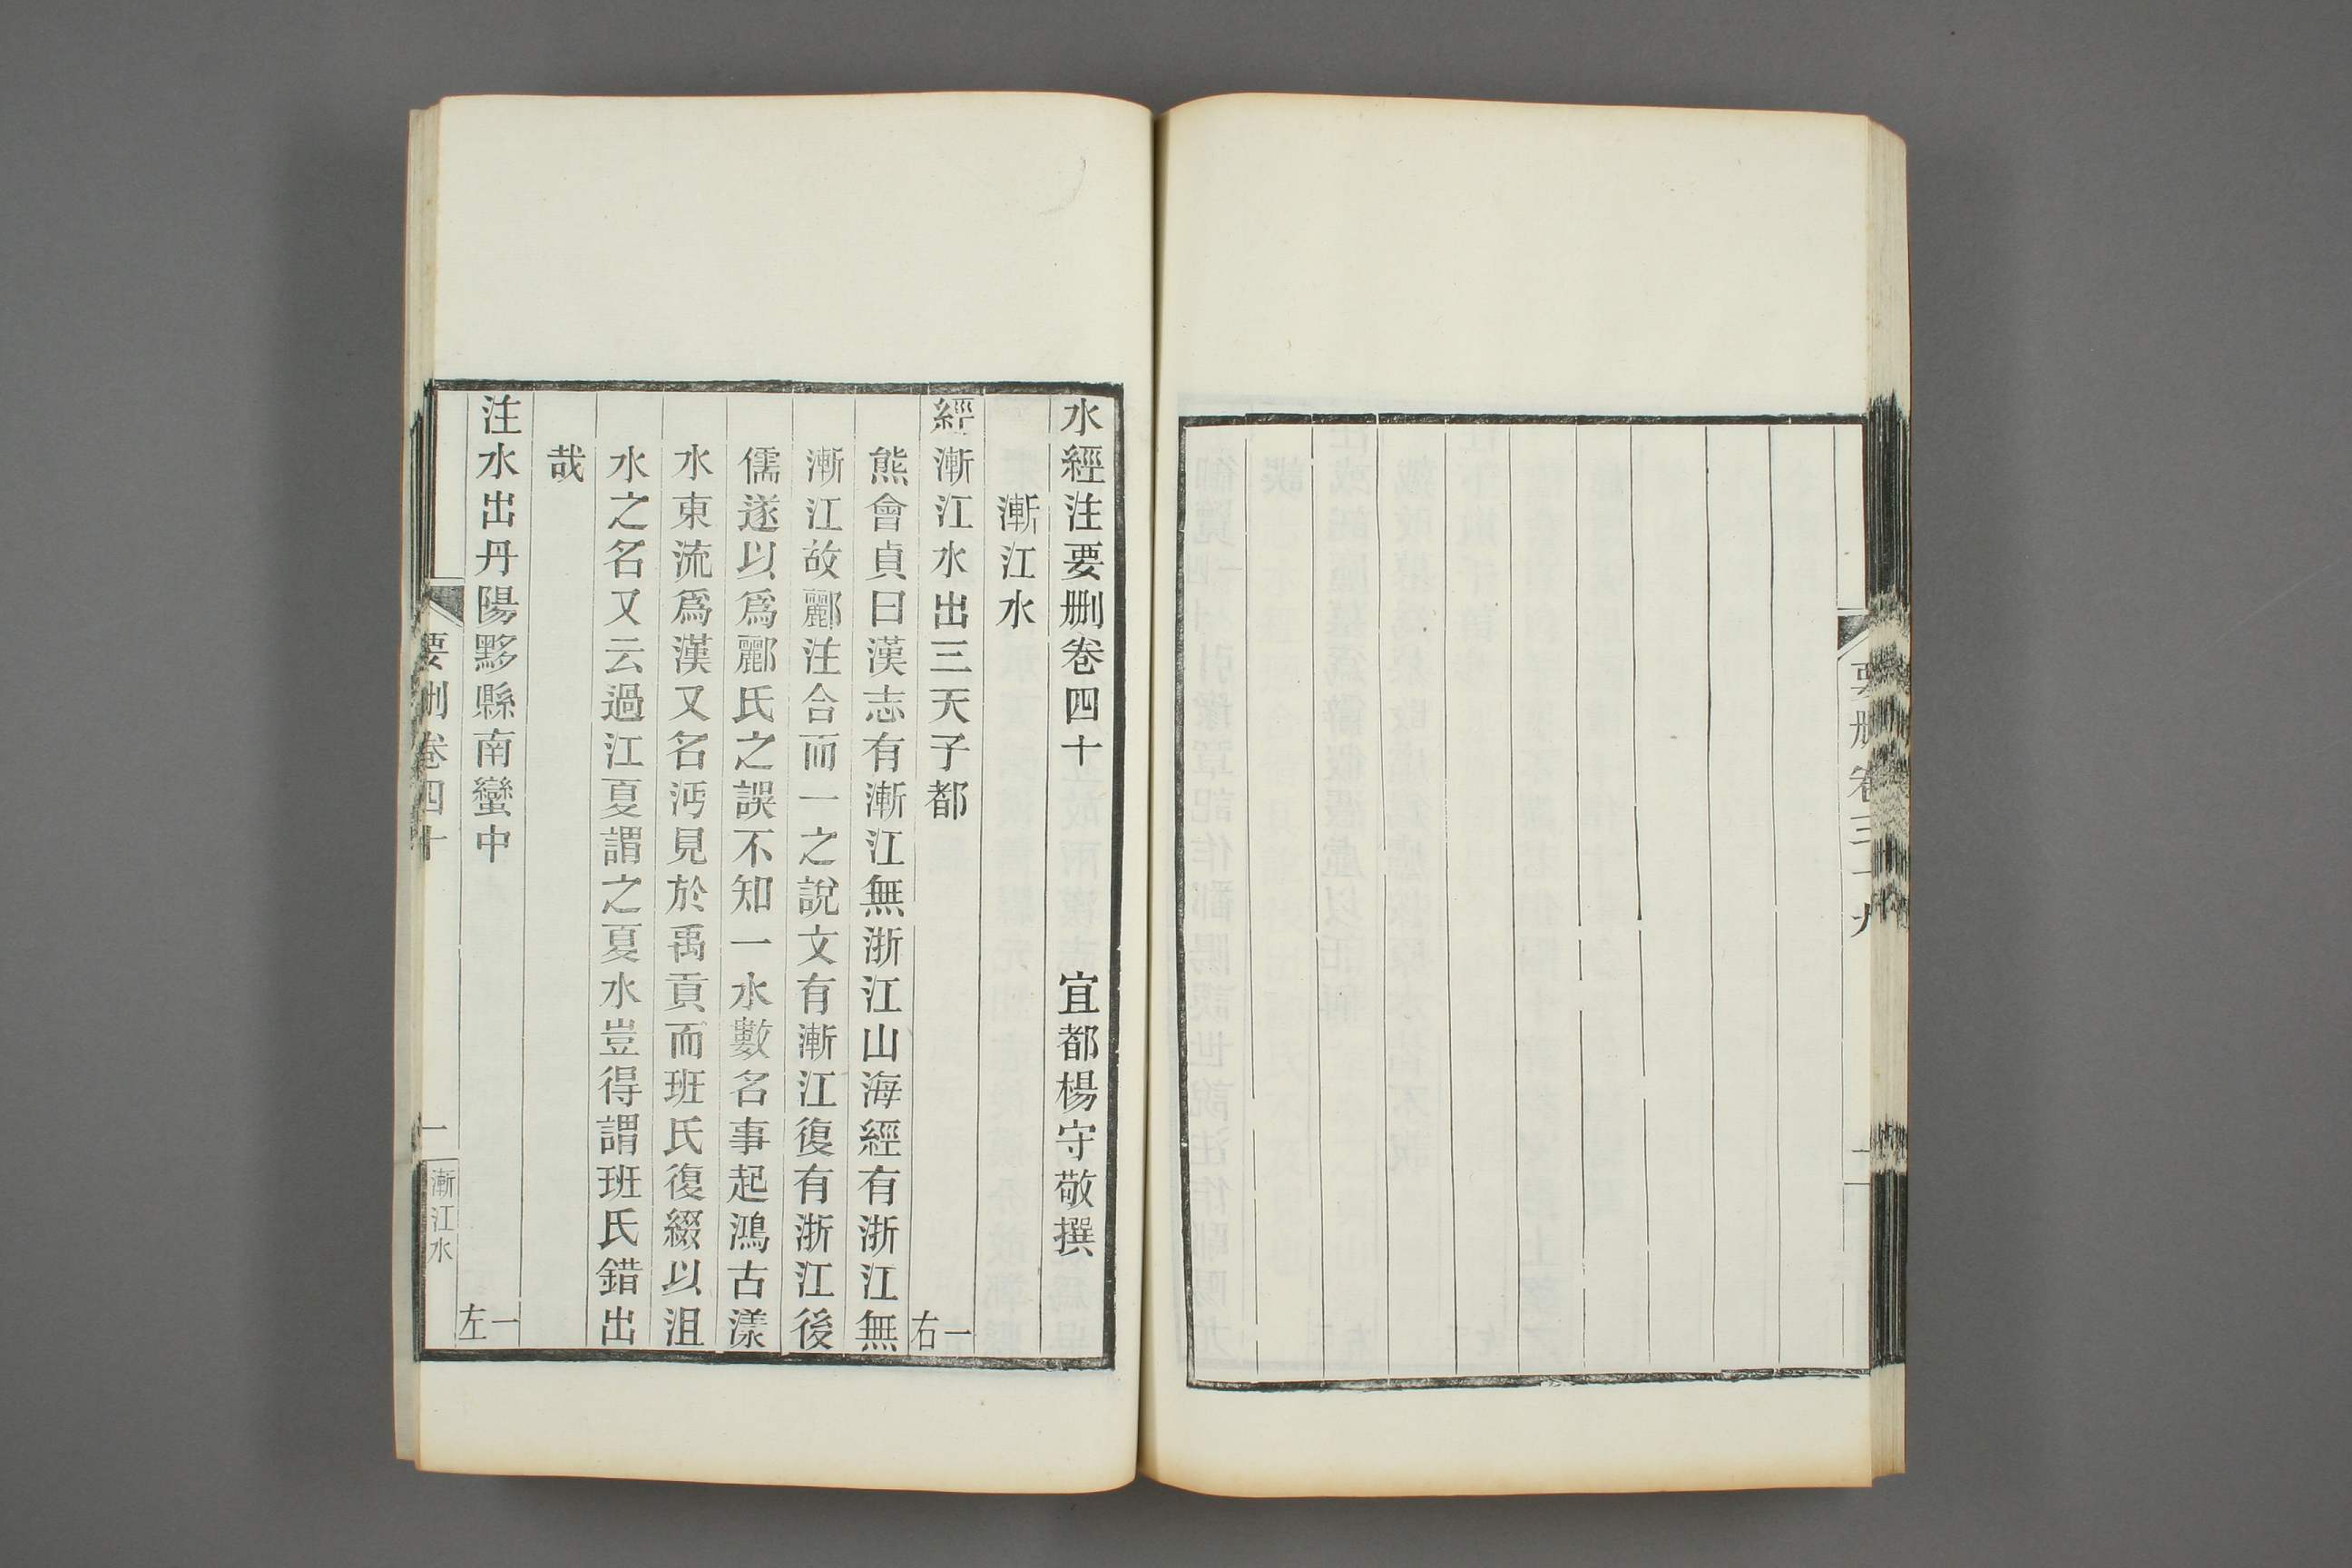 要刪卷三十九
水經注要刪卷四十　宜都楊守敬撰
漸江水
經漸江水出三天子都　一右
熊會貞曰漢志有漸江無浙江山海經有浙江無
漸江故酈注合而一之說文有漸江復有浙江後
儒遂以爲酈氏之誤不知一水數名事起鴻古漾
水東流爲漢又名沔見於禹貢而班氏復綴以沮
水之名又云過江夏謂之夏水豈得謂班氏錯出
哉
注水出丹陽黟縣南蠻中　一左
要刪卷四十　一　漸江水